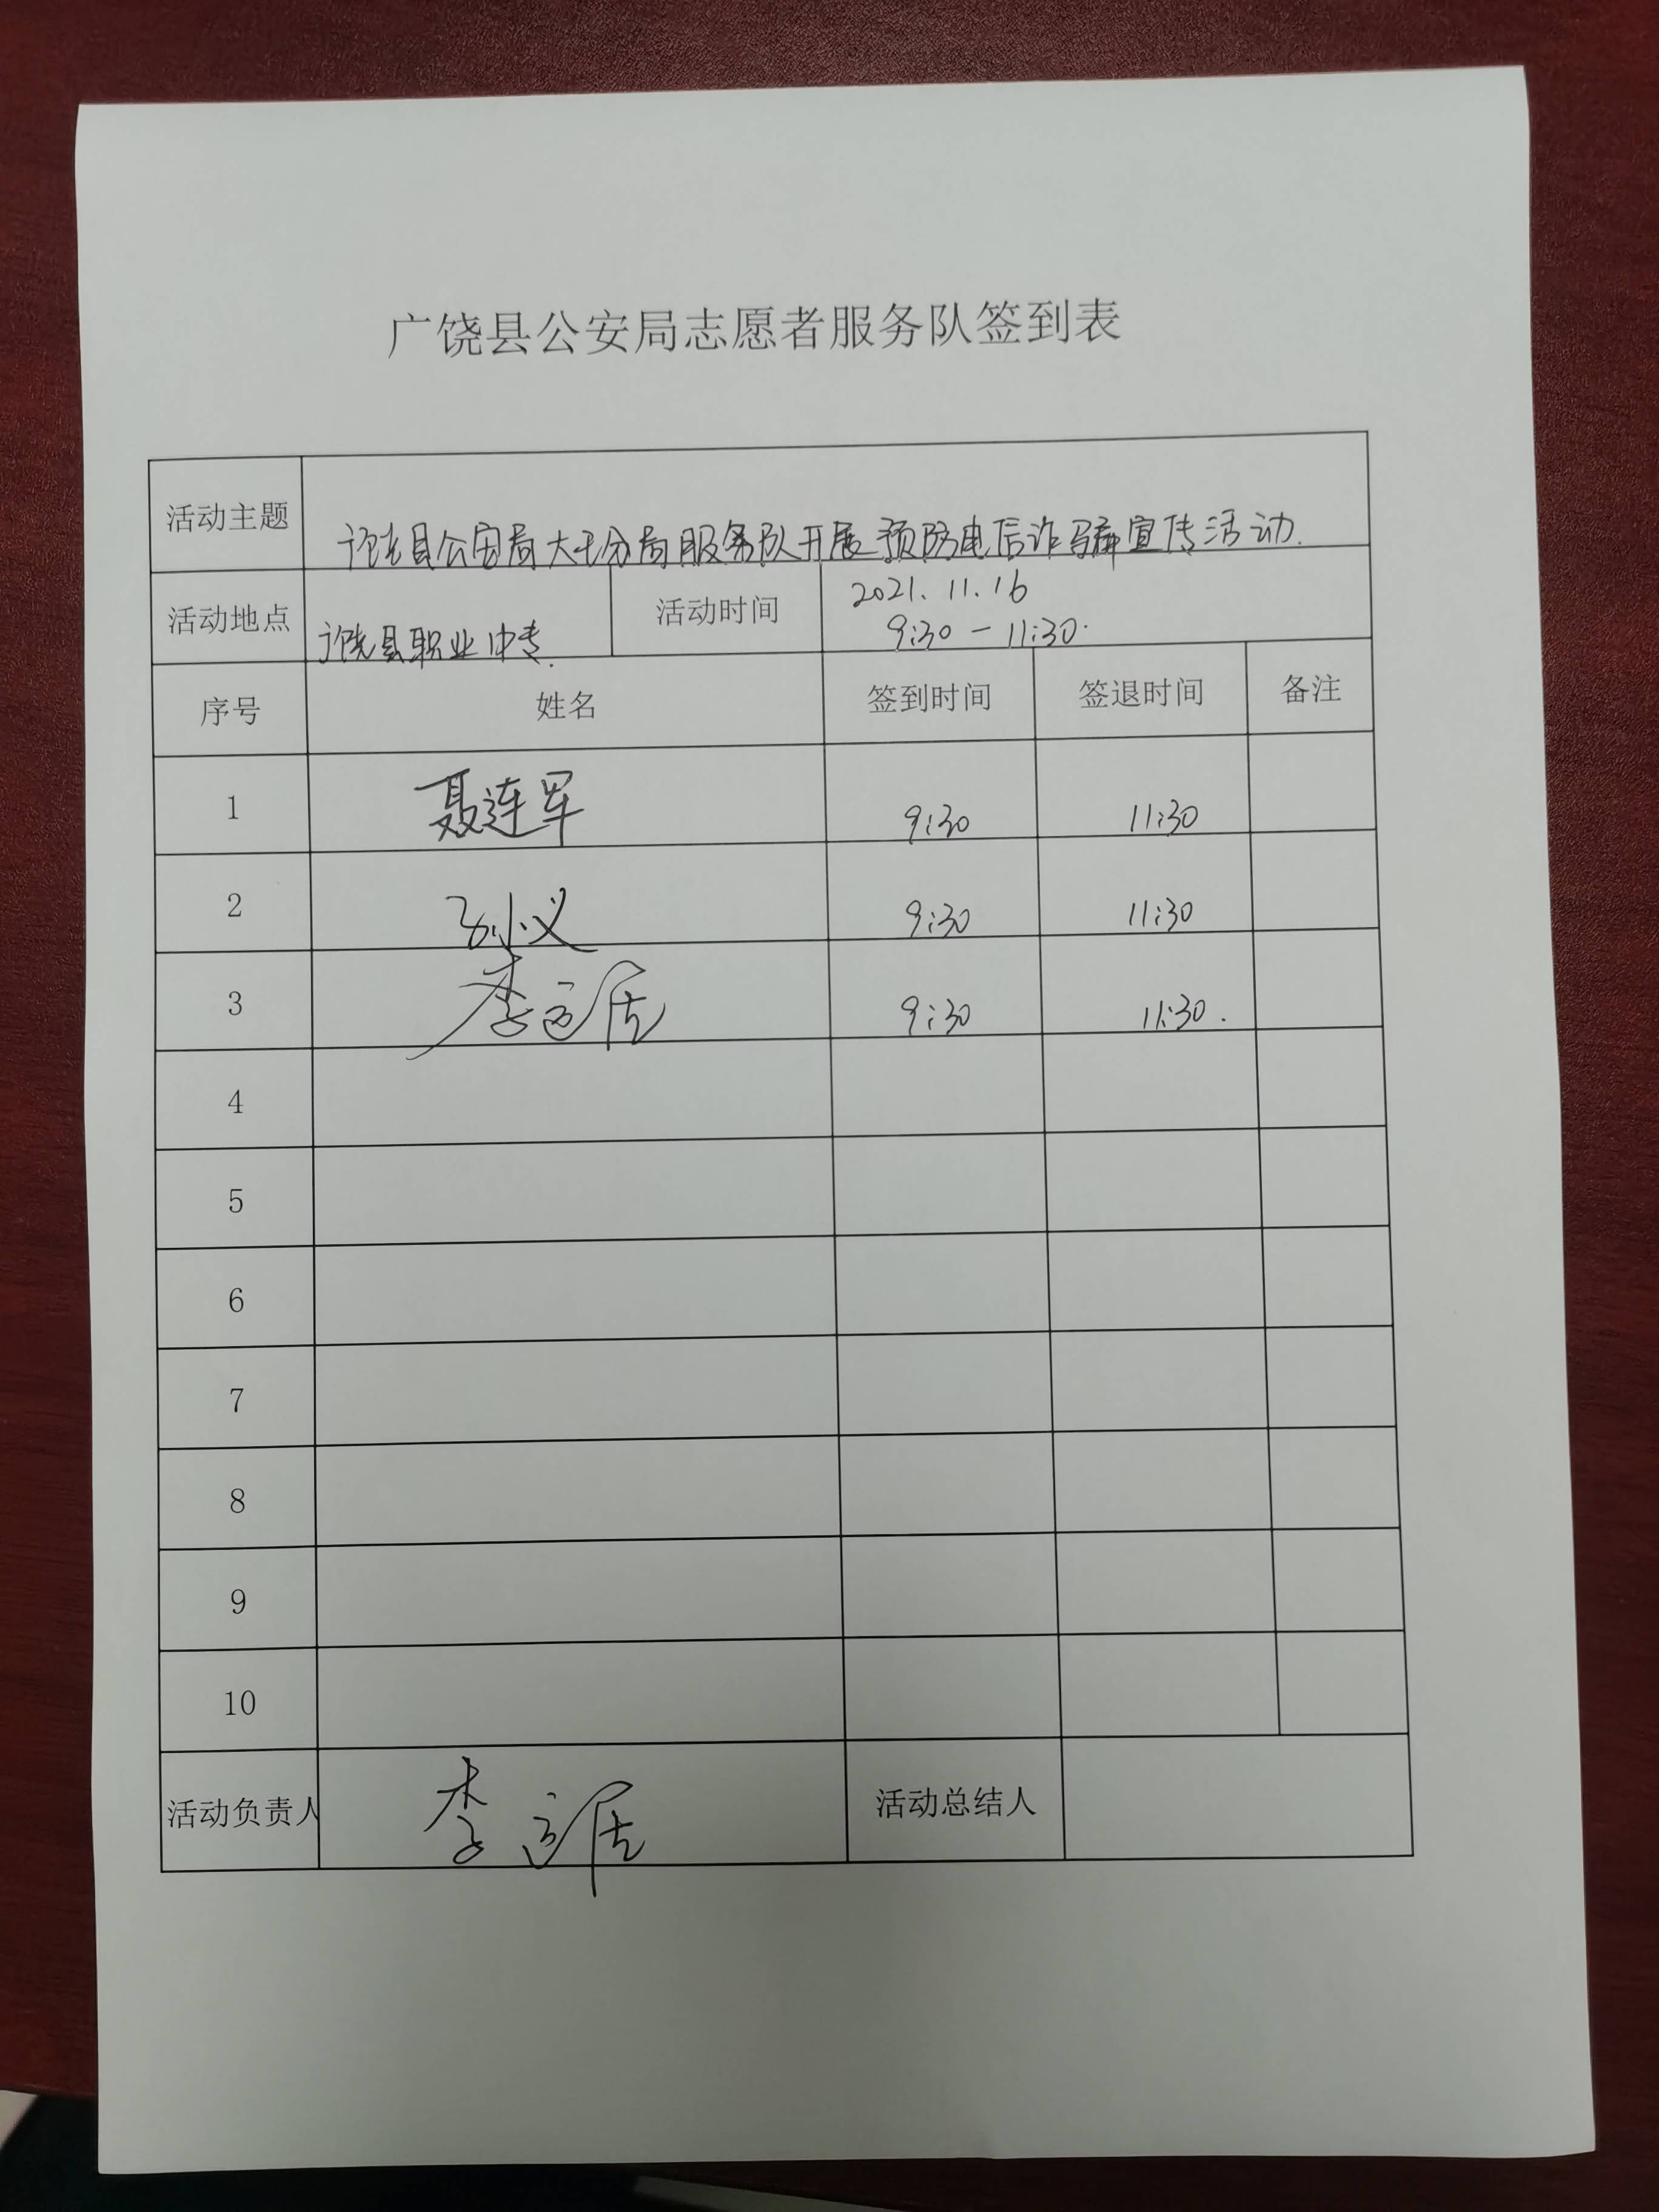 广饶县公安局志愿者服务队签到表
活动主题 广饶县公安局大王分局服务队开展预防电信诈骗宣传活动.
活动地点 广饶县职业中专. 活动时间 2021.11.16
9:30-11:30.
序号 姓名 签到时间 签退时间 备注
1 聂连军 9:30 11:30
2 孙义 9:30 11:30
3 李 居 9:30 11:30.
4
5
6
7
8
9
10
活动负责人 李 居 活动总结人